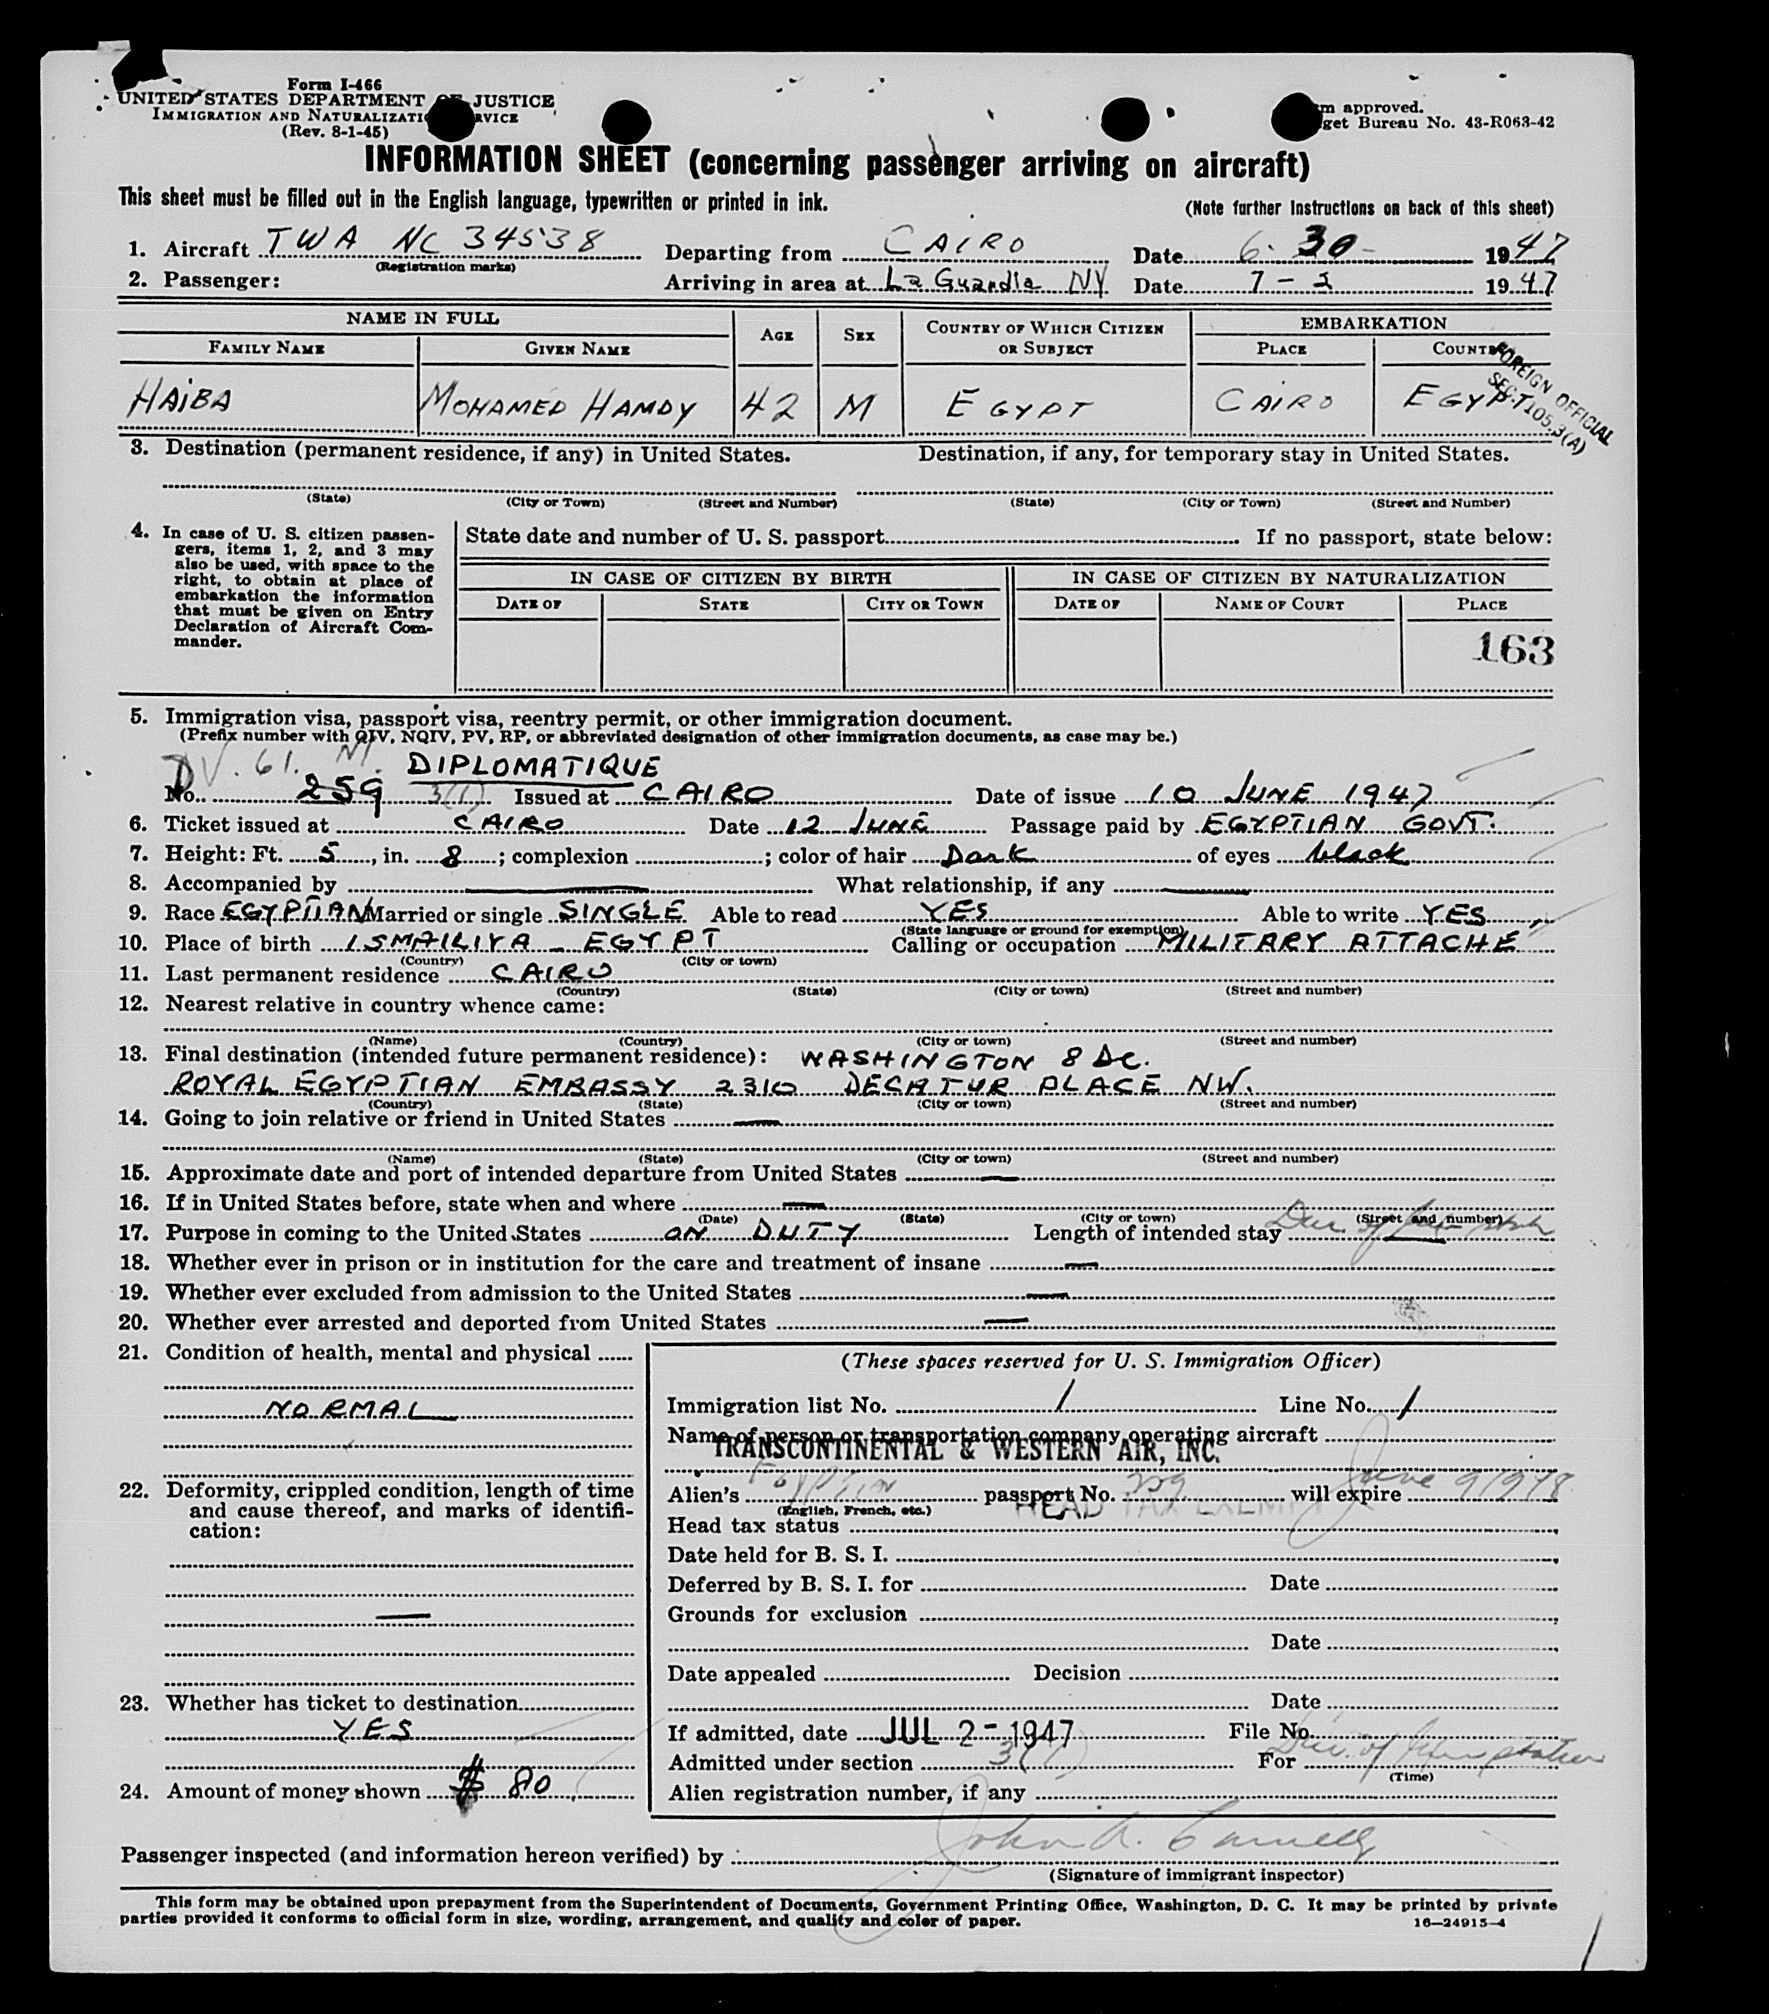 Form I-466
UNITED STATES DEPARTMENT OF JUSTICE
IMMIGRATION AND NATURALIZATION SERVICE
(Rev. 8-1-45)
m approved.
get Bureau No. 43-R063-42
INFORMATION SHEET (concerning passenger arriving on aircraft)
This sheet must be filled out in the English language, typewritten or printed in ink.
(Note further instructions on back of this sheet)
1. Aircraft TWA NC 34538 Departing from CAIRO Date 6-30- 1947
(Registration marks)
2. Passenger: Arriving in area at La Guardia NY Date 7-2 1947
NAME IN FULL AGE SEX COUNTRY OF WHICH CITIZEN OR SUBJECT EMBARKATION
FAMILY NAME GIVEN NAME PLACE COUNTRY
HAIBA MOHAMED HAMDY 42 M EGYPT CAIRO EGYPT
FOREIGN OFFICIAL
SEC. 105.3(A)
3. Destination (permanent residence, if any) in United States. Destination, if any, for temporary stay in United States.
(State) (City or Town) (Street and Number) (State) (City or Town) (Street and Number)
4. In case of U. S. citizen passen-
gers, items 1, 2, and 3 may
also be used, with space to the
right, to obtain at place of
embarkation the information
that must be given on Entry
Declaration of Aircraft Com-
mander.
State date and number of U. S. passport If no passport, state below:
IN CASE OF CITIZEN BY BIRTH IN CASE OF CITIZEN BY NATURALIZATION
DATE OF STATE CITY OR TOWN DATE OF NAME OF COURT PLACE
163
5. Immigration visa, passport visa, reentry permit, or other immigration document.
(Prefix number with QIV, NQIV, PV, RP, or abbreviated designation of other immigration documents, as case may be.)
DV. 61. DIPLOMATIQUE
No. 259 3(1) Issued at CAIRO Date of issue 10 JUNE 1947
6. Ticket issued at CAIRO Date 12 JUNE Passage paid by EGYPTIAN GOVT.
7. Height: Ft. 5, in. 8; complexion ; color of hair Dark of eyes black
8. Accompanied by — What relationship, if any —
9. Race EGYPTIAN Married or single SINGLE Able to read YES Able to write YES
(State language or ground for exemption)
10. Place of birth ISMAILIYA - EGYPT Calling or occupation MILITARY ATTACHE
(Country) (City or town)
11. Last permanent residence CAIRO
(Country) (State) (City or town) (Street and number)
12. Nearest relative in country whence came:
(Name) (Country) (City or town) (Street and number)
13. Final destination (intended future permanent residence): WASHINGTON 8 DC.
ROYAL EGYPTIAN EMBASSY 2310 DECATUR PLACE NW.
(Country) (State) (City or town) (Street and number)
14. Going to join relative or friend in United States —
(Name) (State) (City or town) (Street and number)
15. Approximate date and port of intended departure from United States —
16. If in United States before, state when and where —
(Date) (State) (City or town) (Street and number)
17. Purpose in coming to the United States ON DUTY Length of intended stay —
18. Whether ever in prison or in institution for the care and treatment of insane —
19. Whether ever excluded from admission to the United States —
20. Whether ever arrested and deported from United States —
21. Condition of health, mental and physical
NORMAL
22. Deformity, crippled condition, length of time
and cause thereof, and marks of identifi-
cation:
—
23. Whether has ticket to destination
YES
24. Amount of money shown $ 80
(These spaces reserved for U. S. Immigration Officer)
Immigration list No. 1 Line No. 1
Name of person or transportation company operating aircraft
TRANSCONTINENTAL & WESTERN AIR, INC.
Alien's Egyptian passport No. 259 will expire June 9 1948
(English, French, etc.)
HEAD TAX EXEMPT
Head tax status
Date held for B. S. I.
Deferred by B. S. I. for Date
Grounds for exclusion
Date
Date appealed Decision
Date
If admitted, date JUL 2 - 1947 File No.
Admitted under section 3(1) For
(Time)
Alien registration number, if any
Passenger inspected (and information hereon verified) by John A.
(Signature of immigrant inspector)
This form may be obtained upon prepayment from the Superintendent of Documents, Government Printing Office, Washington, D. C. It may be printed by private
parties provided it conforms to official form in size, wording, arrangement, and quality and color of paper.
16—24915-4